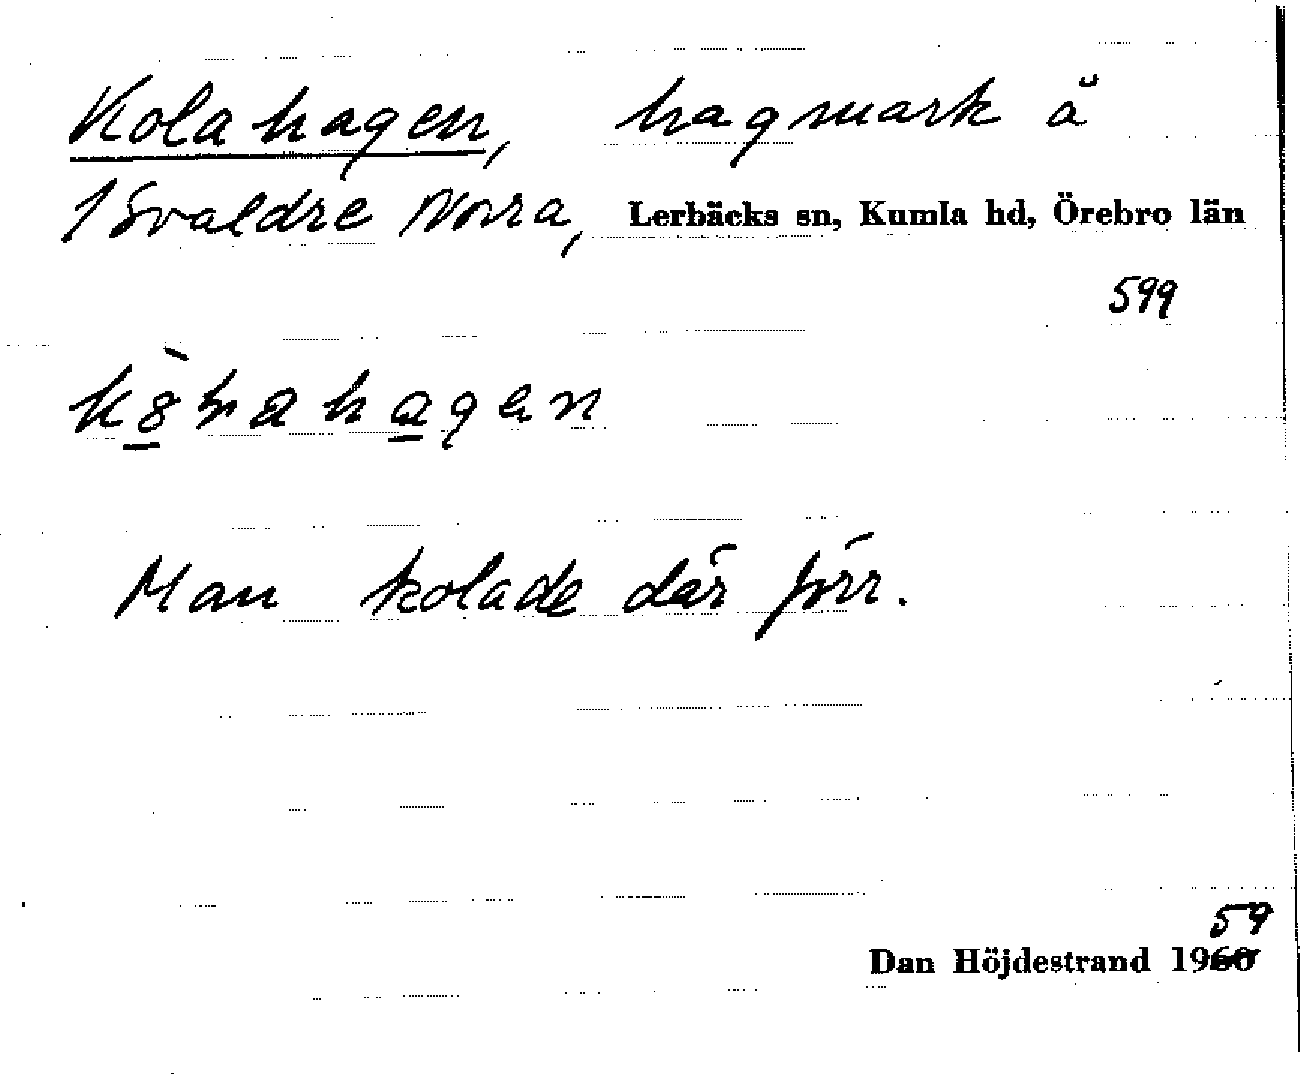 Kolahagen, hagmark å
1 Svaldre Norra, Lerbäcks sn, Kumla hd, Örebro län
599
Man kolade där förr.
59
Dan Höjdestrand 1960